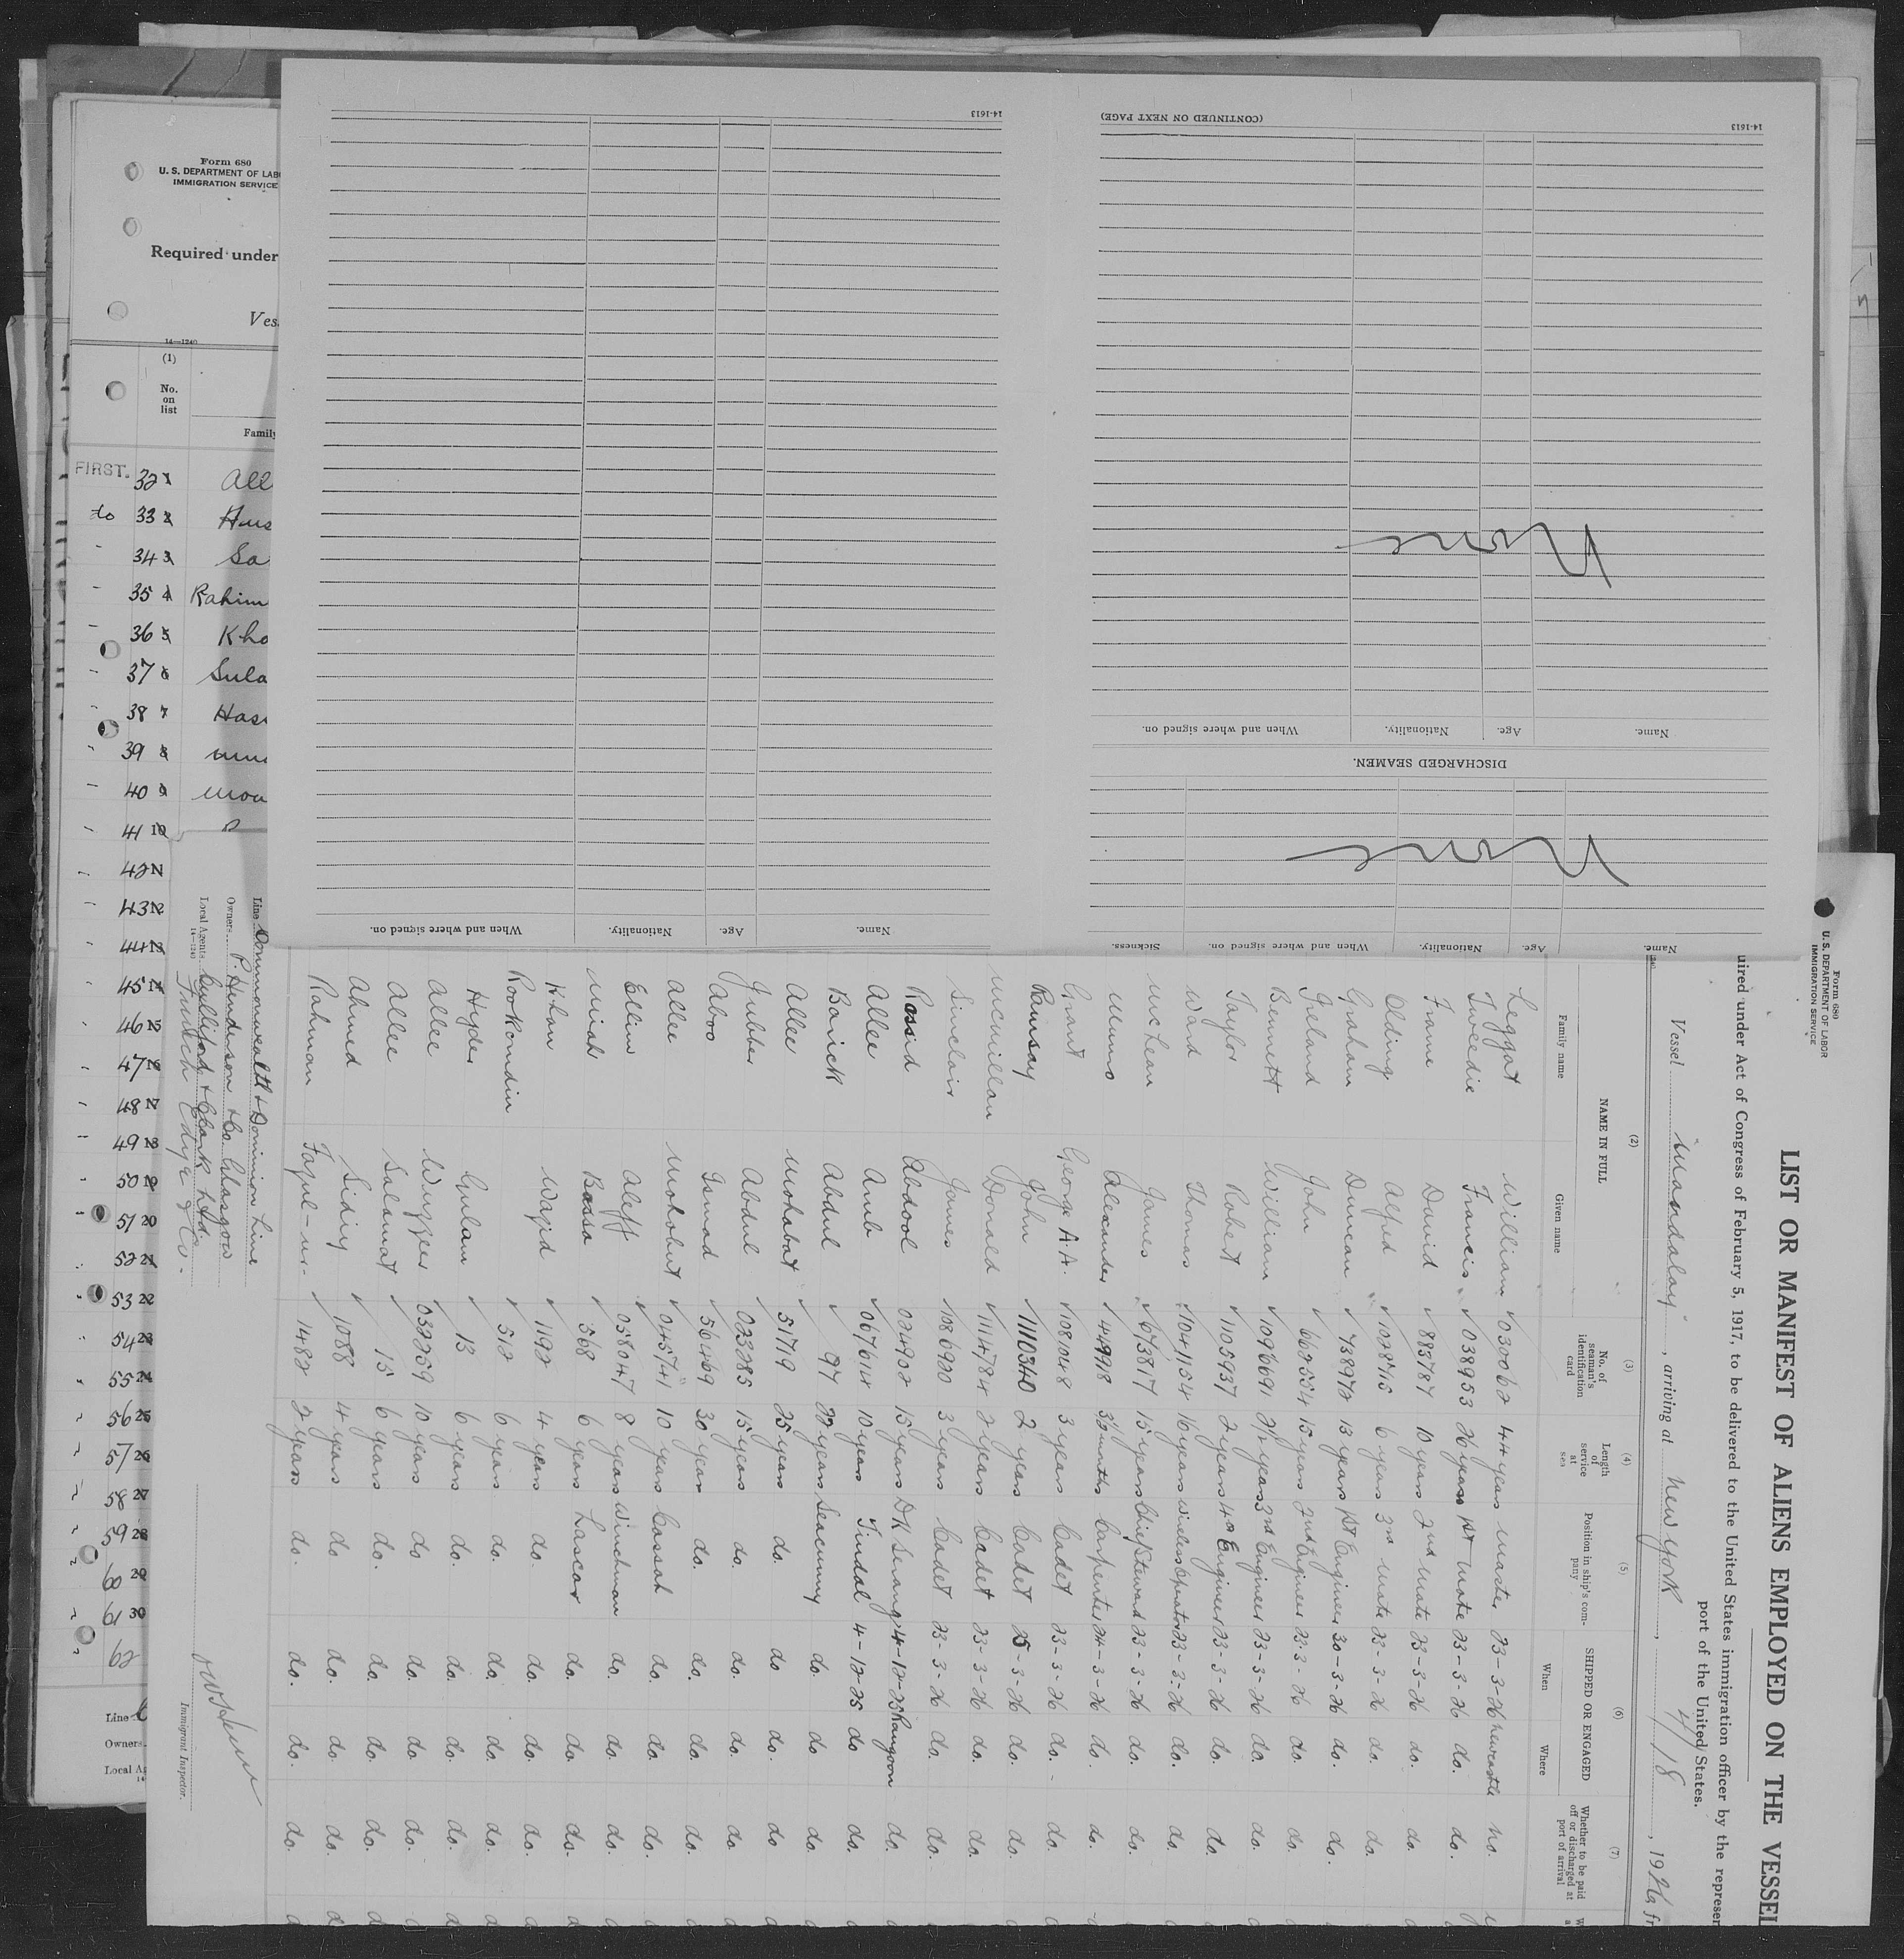 Form 680
U. S. DEPARTMENT OF LABO
IMMIGRATION SERVICE
Required under
Ves
14—1240
(1)
No.
on
list
Family
FIRST. 32 1 All
do 33 2 Hus
34 3 Sa
35 4 Rahim
36 5 Kho
37 6 Sula
38 7 Hass
39 8
40 9
41 10
42 11
43 12
44 13
45 14
46 15
47 16
48 17
49 18
50 19
51 20
52 21
53 22
54 23
55 24
56 25
57 26
58 27
59 28
60 29
61 30
62
Line
Owners
Local Ag
14-1613
Name. Age. Nationality. When and where signed on.
14-1613
(CONTINUED ON NEXT PAGE)
None
Name. Age. Nationality. When and where signed on.
DISCHARGED SEAMEN.
None
Name. Age. Nationality. When and where signed on. Sickness.
Form 680
U. S. DEPARTMENT OF LABOR
IMMIGRATION SERVICE
LIST OR MANIFEST OF ALIENS EMPLOYED ON THE VESSEL
uired under Act of Congress of February 5, 1917, to be delivered to the United States immigration officer by the represen
port of the United States.
Vessel "Mandalay", arriving at New York, 4/18, 1926, fr
(2) (3) (4) (5) (6) (7)
NAME IN FULL
Family name Given name
No. of seaman's identification card
Length of service at sea
Position in ship's company
SHIPPED OR ENGAGED
When Where
Whether to be paid off or discharged at port of arrival
Leggat William 030062 44 years Master 23-3-26 Newcastle No.
Tweedie Francis 038953 26 years 1st Mate 23-3-26 do. do.
Frame David 883787 10 years 2nd Mate 23-3-26 do. do.
Olding Alfred 1028715 6 years 3rd Mate 23-3-26 do. do.
Graham Duncan 738972 13 years 1st Engineer 30-3-26 do. do.
Ireland John 662554 15 years 2nd Engineer 23-3-26 do. do.
Bennett William 1096691 2½ years 3rd Engineer 23-3-26 do. do.
Taylor Robert 1105937 2 years 4th Engineer 23-3-26 do. do.
Ward Thomas 1041154 16 years Wireless Operator 23-3-26 do. do.
McLean James 673817 15 years Chief Steward 23-3-26 do. do.
Munro Alexander 449918 3½ months Carpenter 24-3-26 do. do.
Grant George A.A. 1081048 3 years Cadet 23-3-26 do. do.
Ramsay John 1110340 2 years Cadet 25-3-26 do. do.
McMillan Donald 1114784 2 years Cadet 23-3-26 do. do.
Sinclair James 1086920 3 years Cadet 23-3-26 do. do.
Rossid Abdool 024902 15 years Dk Serang 4-12-25 Rangoon do.
Allee Amb 067614 10 years Tindal 4-12-25 do do.
Barick Abdul 97 22 years Seacunny do. do do.
Allee Mohabat 51719 25 years do. do do. do
Jubber Abdul 023285 15 years do. do. do. do.
Aboo Ismad 56469 30 years do. do. do. do.
Allee Mohobut 045741 10 years Cassab do. do. do.
Ellim Aleff 058047 8 years Winchman do. do. do.
Miah Bassa 568 6 years Lascar do. do. do.
Khan Wajid 1192 4 years do. do. do. do.
Rookondin 512 6 years do. do. do. do.
Hyder Gulam 13 6 years do. do. do. do.
Allee Wuzzer 032259 10 years do do. do. do.
Allee Salamat 15 6 years do. do. do. do.
Ahmed Sidiq 1088 4 years do do. do. do.
Rahman Fazul-ur- 1482 2 years do. do. do. do.
Line Commonwealth & Dominion Line
Owners P. Henderson & Co. Glasgow
Local Agents
14—1240
Funch Edye & Co.
Immigrant Inspector.